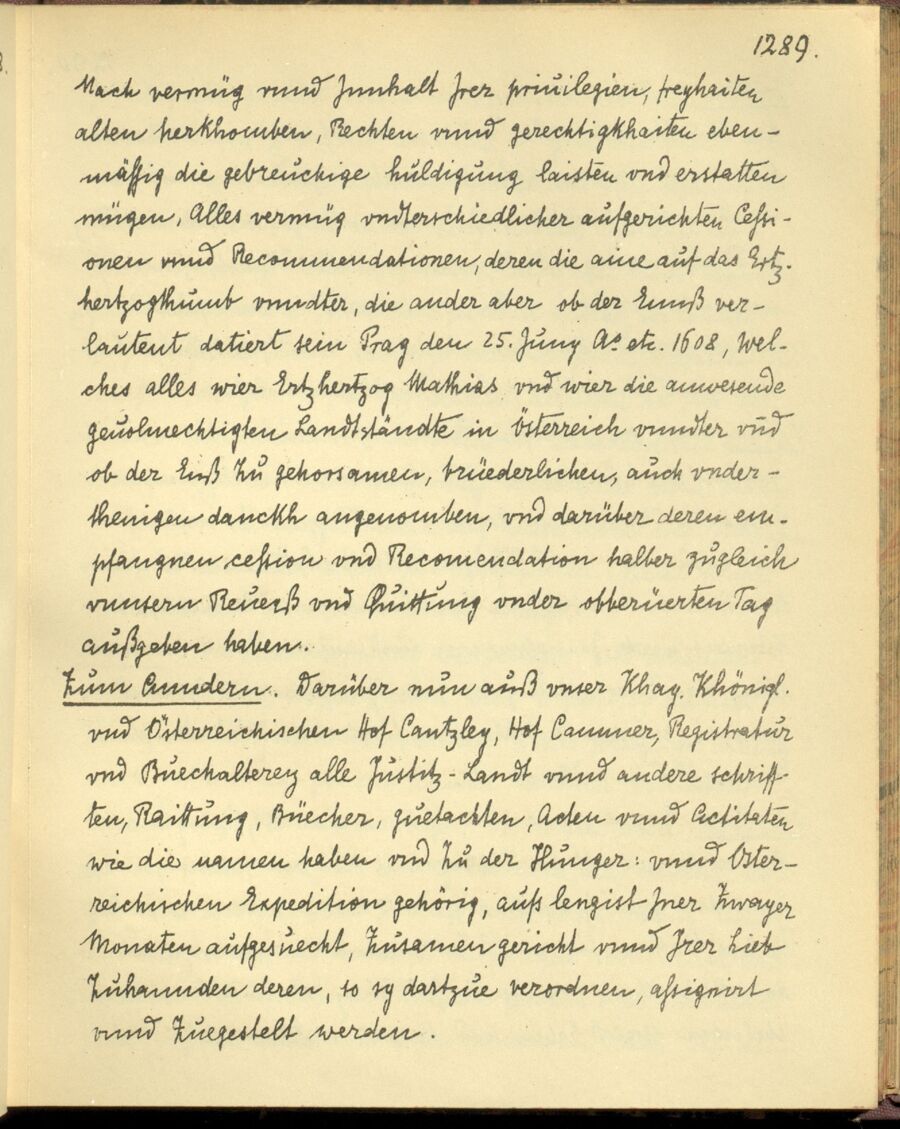 1289.
Nach vermüg vnnd Jnnhalt Jrer priuilegien, freyhaiten
alten herkhomben, Rechten vnnd gerechtigkhaiten eben-
mässig die gebreuchige huldigung laisten vnd erstatten
mügen, Alles vermüg vndterschiedlicher aufgerichten Cessi-
onen vnnd Recommendationen, deren die aine auf das Ertz-
hertzogthumb vnndter, die ander aber ob der Ennß ver-
lautent datiert sein Prag den 25. Juny Ao etc. 1608, Wel-
ches alles wier Ertzhertzog Mathias vnd wier die anwesende
geuolmechtigten Landtständte in Österreich vnndter vnd
ob der Enß Zu gehorsamen, brüederlichen, auch vnder-
thenigen danckh angenomben, vnd darüber deren em-
pfangnen cession vnd Recomendation halber zugleich
vnnsern Reuerß vnd Quittung vnder obberüerten Tag
außgeben haben.
Zum Anndern. Darüber nun auß vnser Khay. Khönigl.
vnd Österreichischen Hof Cantzley, Hof Cammer, Registratur
vnd Buechalterey alle Justitz- Landt vnnd andere schriff-
ten, Raittung, Büecher, guetachten, Acten vnnd Actitaten
wie die namen haben vnd Zu der Hunger: vnnd Öster-
reichischen Expedition gehörig, aufs lengist Jner Zwayer
Monaten aufgesuecht, Zusamen gericht vnnd Jrer Lieb
Zuhannden deren, so sy dartzue verordnen, assignirt
vnnd Zuegestelt werden.